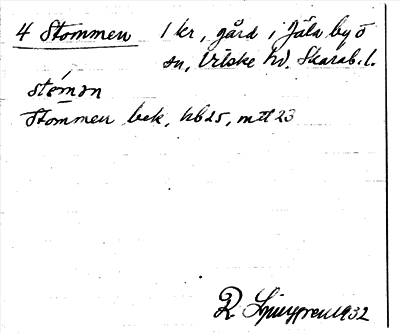 4 Stommen 1 kr, gård i Jäla by o
sn, Vilske hd. Skarab. l.
stómən
Stommen bek, hb25, mtl 23
R Ljunggren 1932